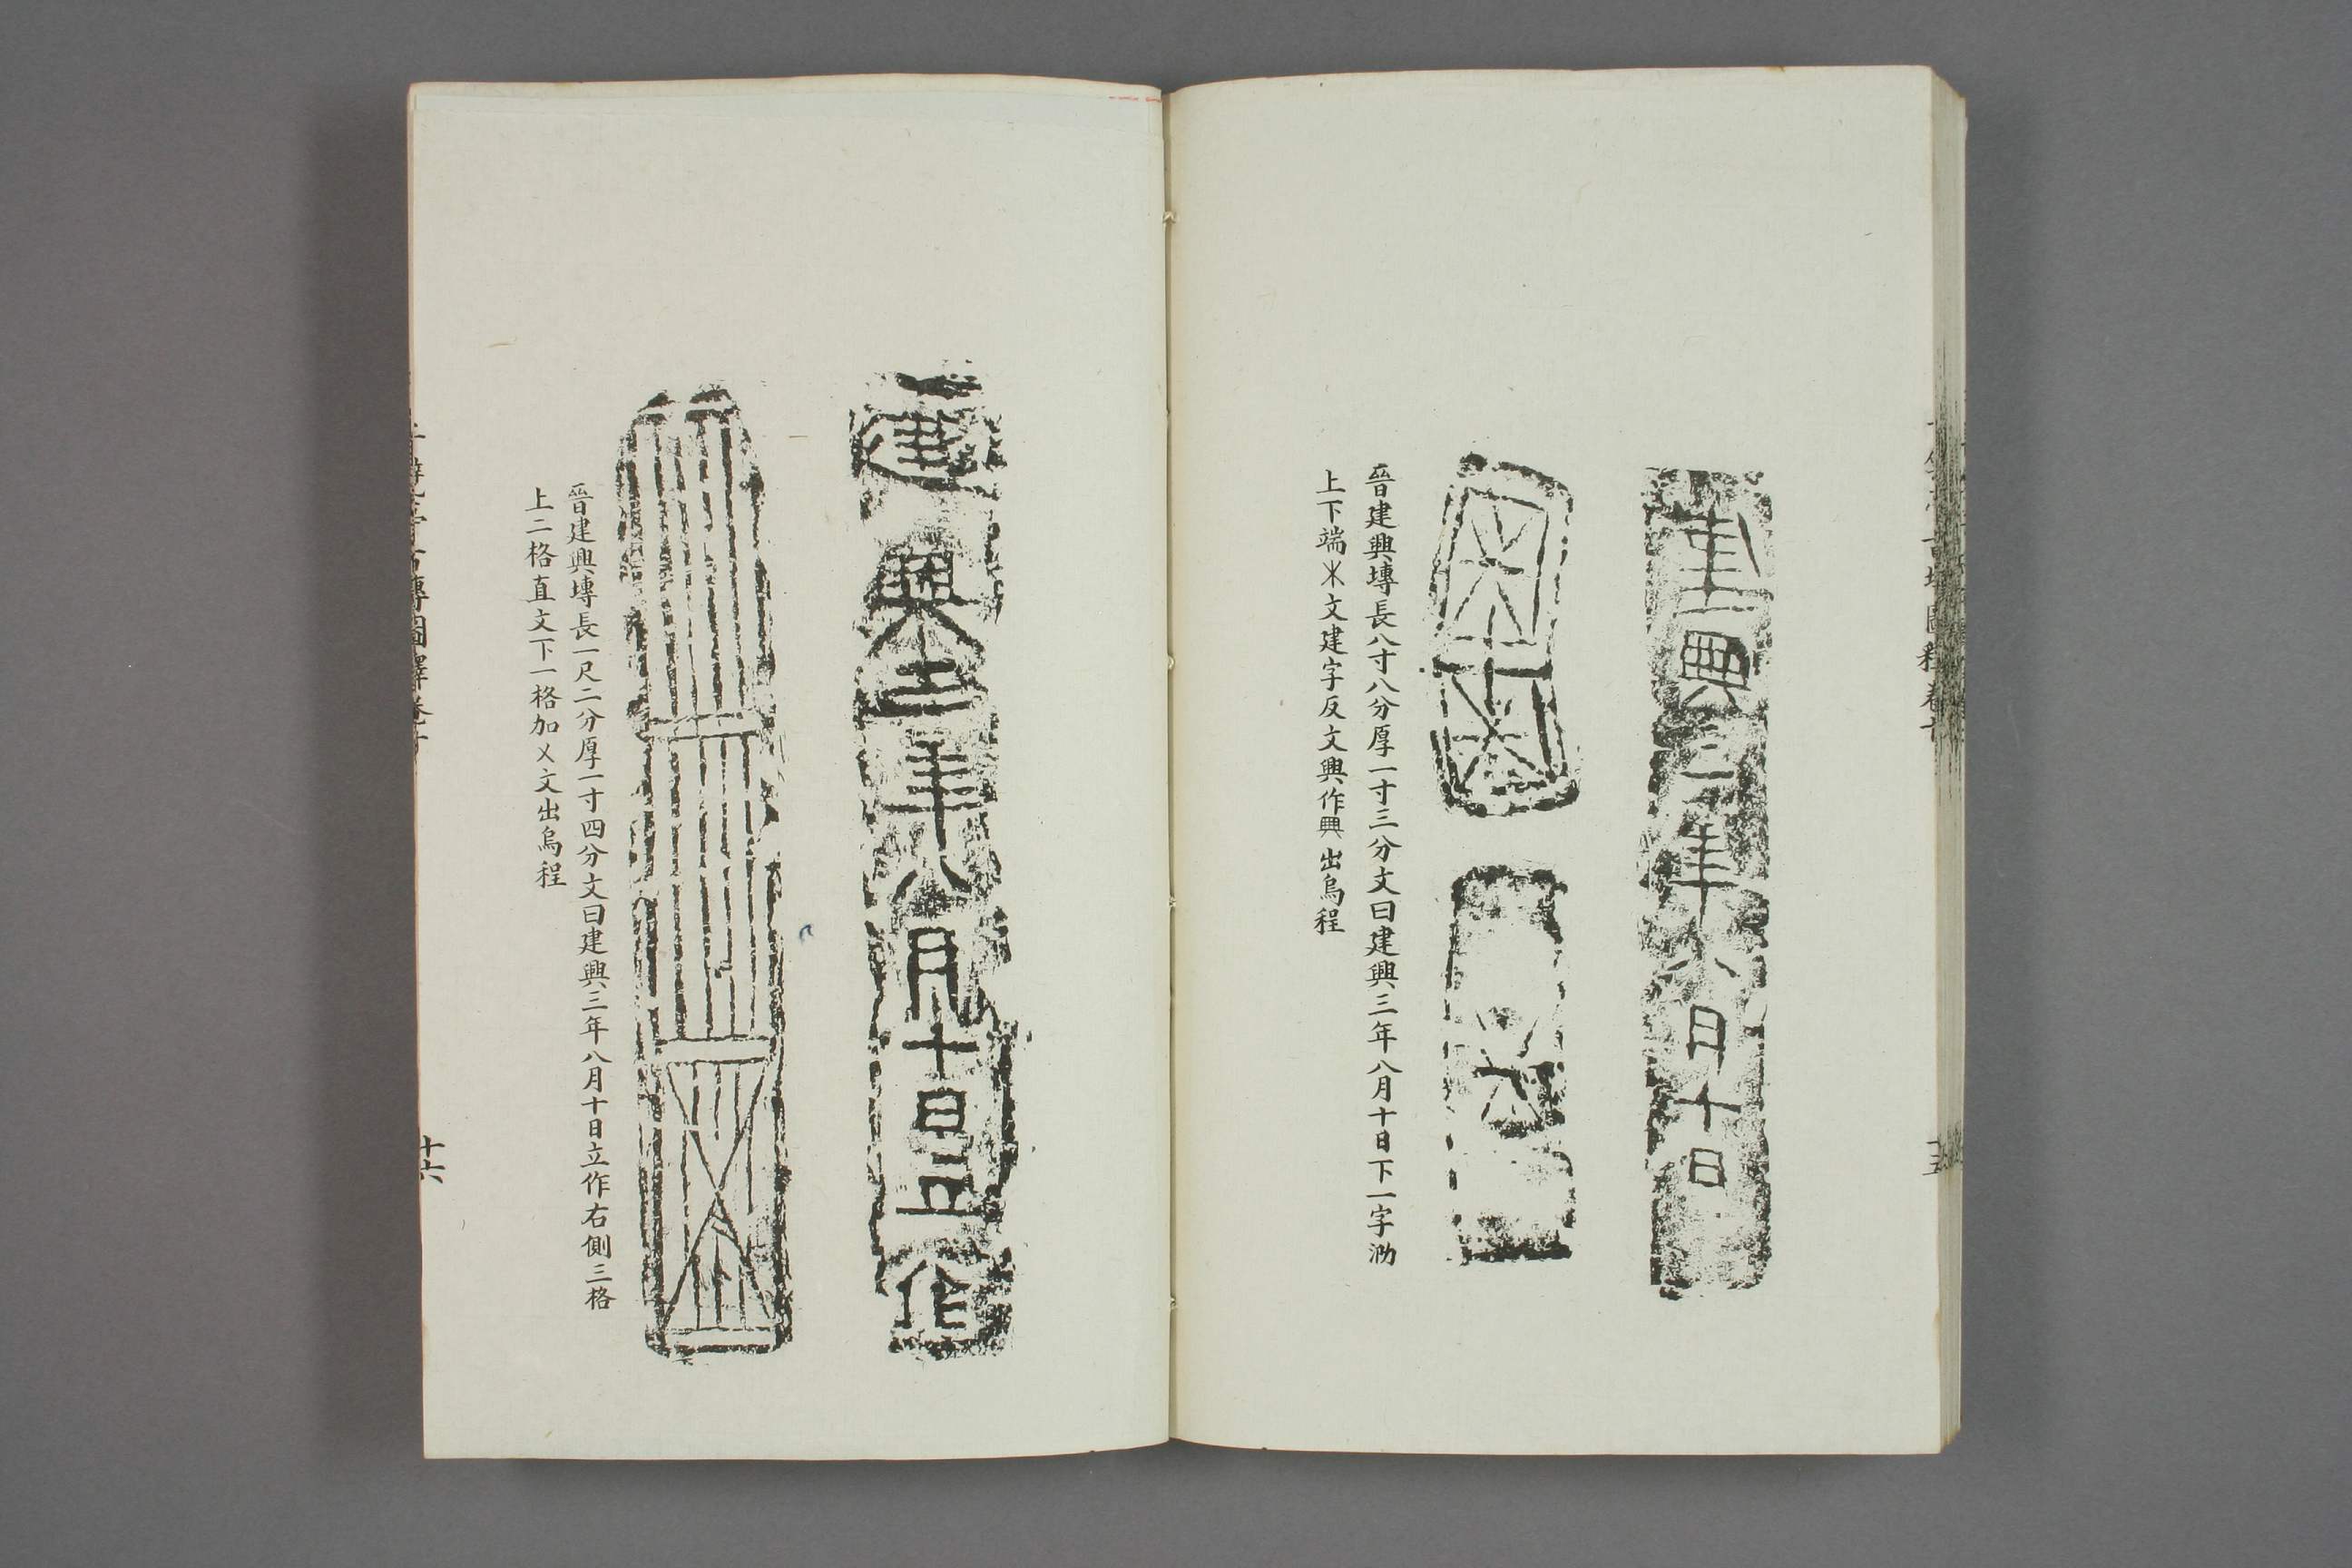 建興三年八月十日
晉建興塼長八寸八分厚一寸三分文曰建興三年八月十日下一字泐
上下端乂文建字反文興作興出烏程
建興三年八月十日立作
晉建興塼長一尺二分厚一寸四分文曰建興三年八月十日立作右側三格
上二格直文下一格加乂文出烏程
十六